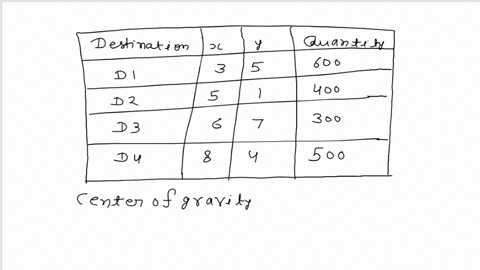 Destination x y Quantity
D1 3 5 600
D2 5 1 400
D3 6 7 300
D4 8 4 500
Center of gravity